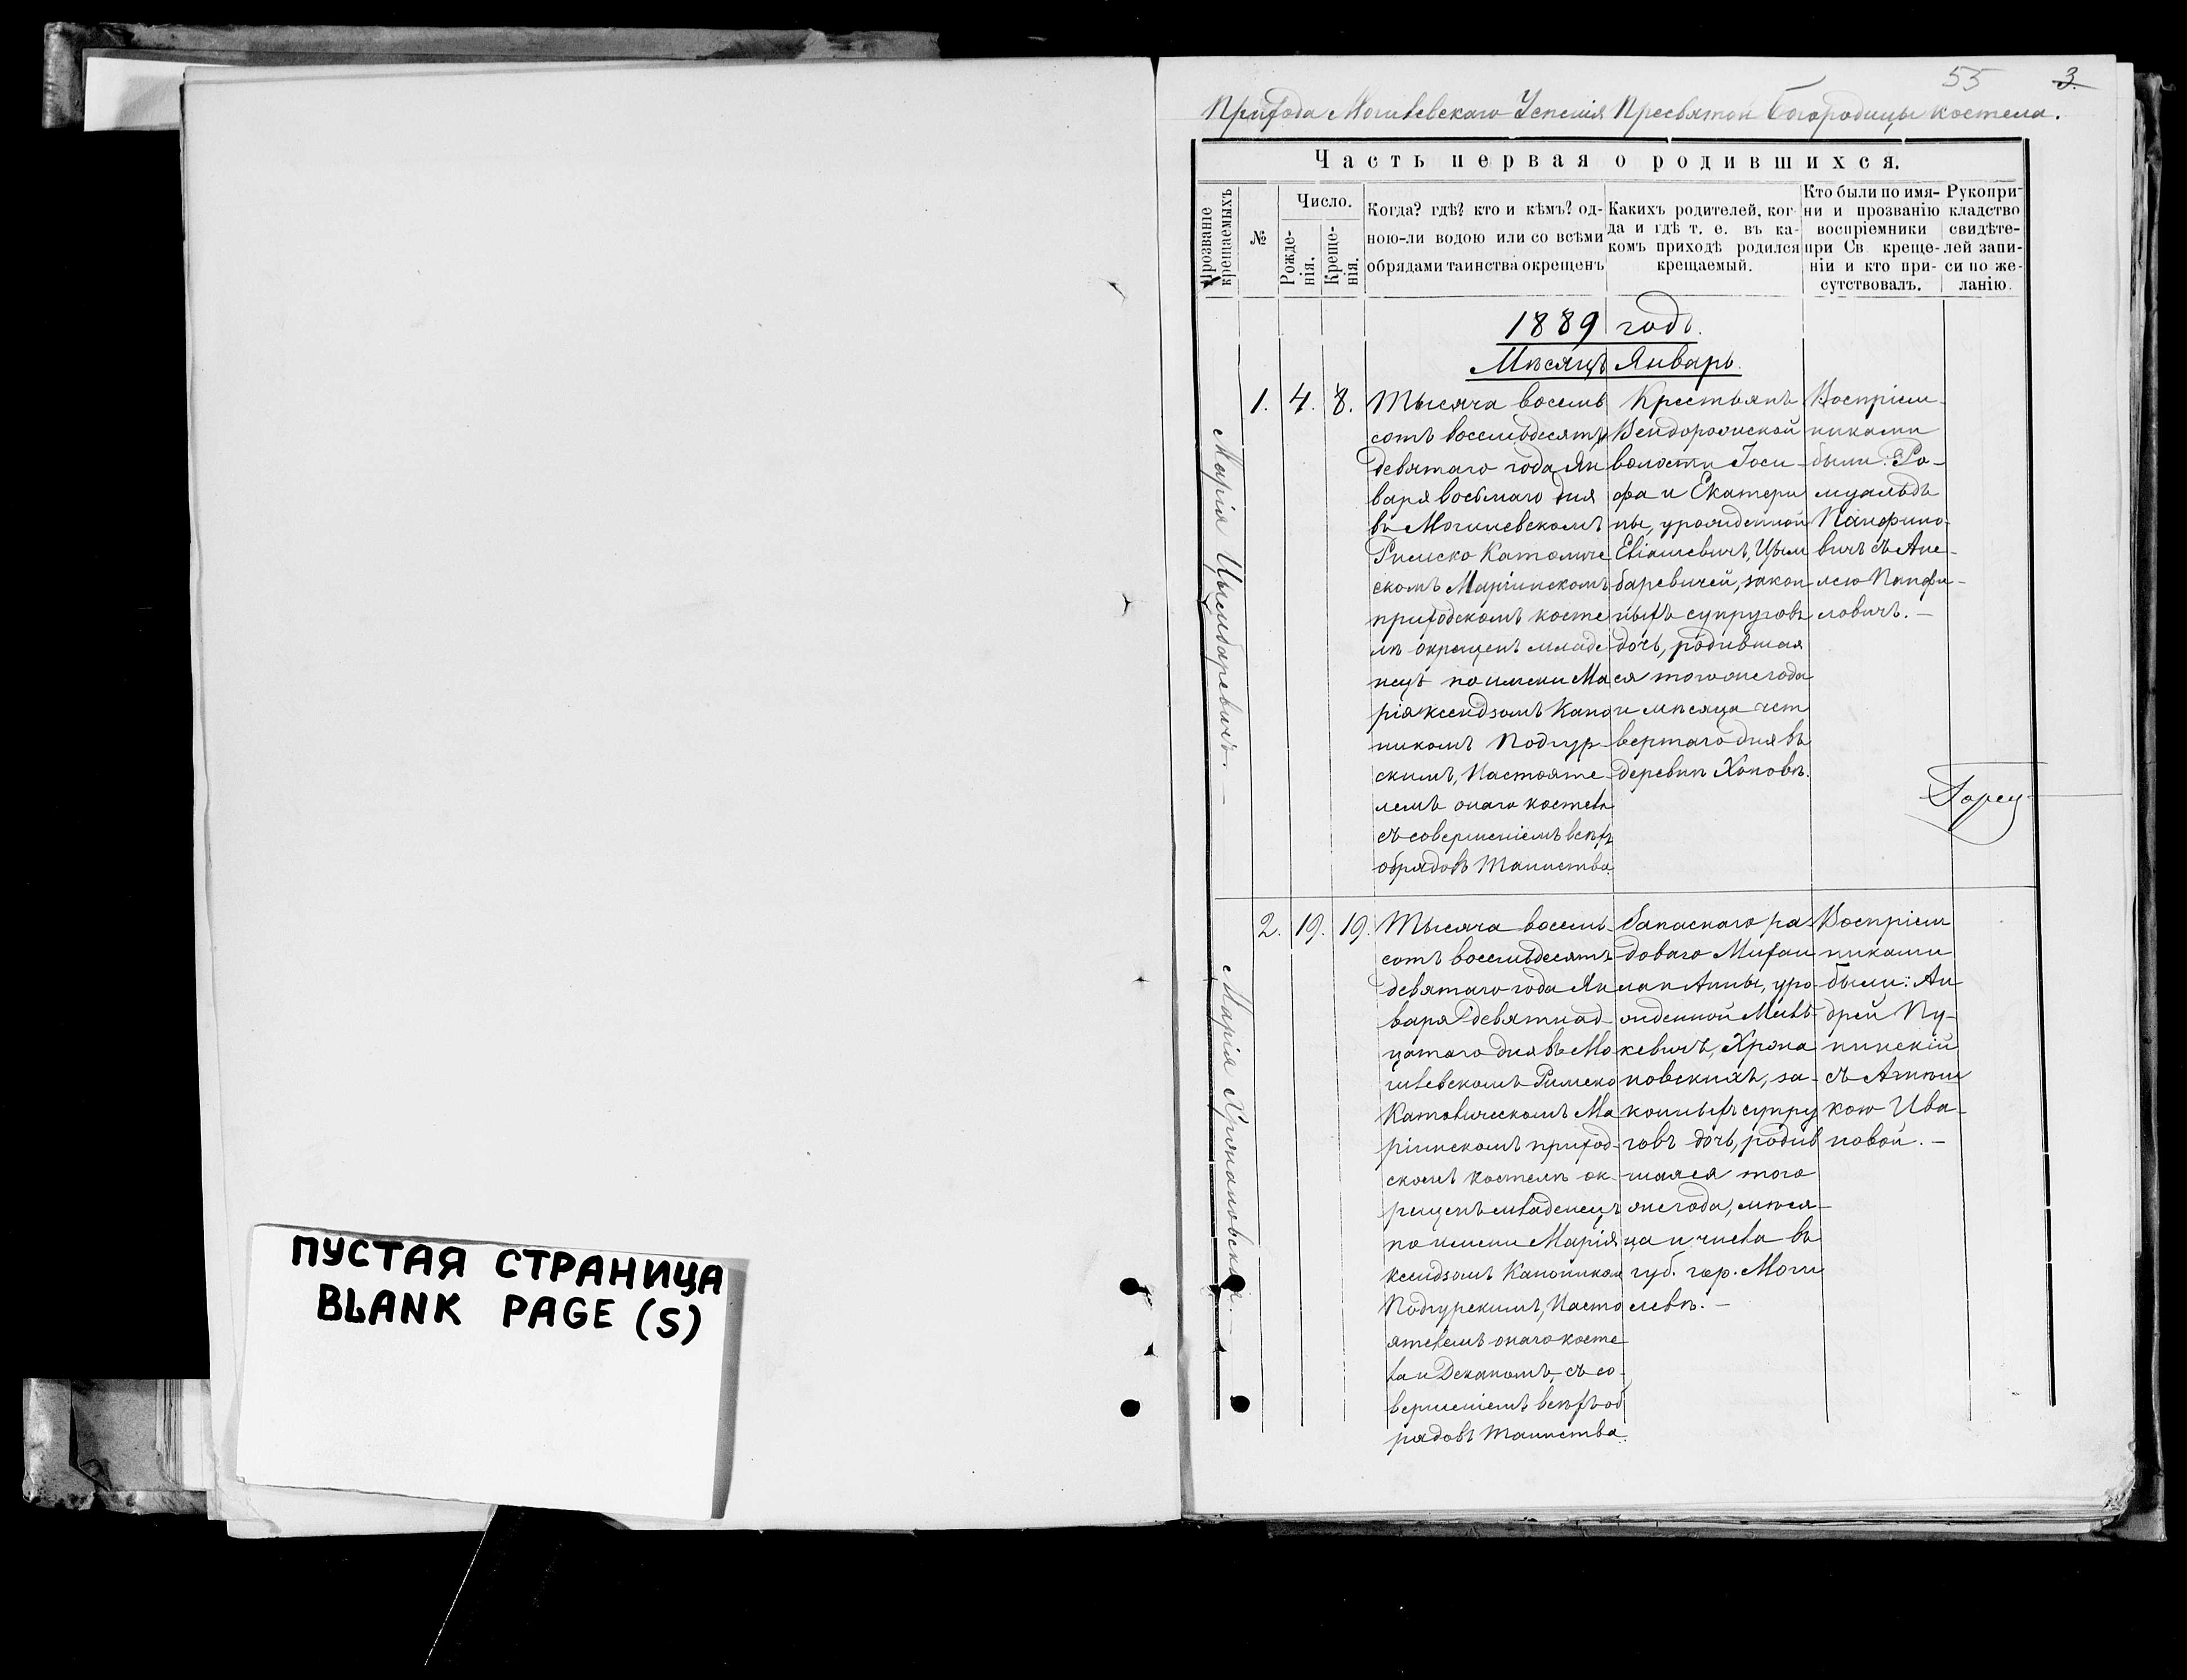 ПУСТАЯ СТРАНИЦА
BLANK PAGE (S)
55 3.
Прихода Могилевскаго Успенія Пресвятой Богородицы костела.
Часть первая о родившихся.
Прозваніе крещаемыхъ
№
Число.
Рожденія.
Крещенія.
Когда? гдѣ? кто и кѣмъ? од-
ною-ли водою или со всѣми
обрядами таинства окрещенъ
Какихъ родителей, ког-
да и гдѣ т. е. въ ка-
комъ приходѣ родился
крещаемый.
Кто были по имя-
ни и прозванію
воспріемники
при Св. креще-
ніи и кто при-
сутствовалъ.
Рукопри-
кладство
свидѣте-
лей запи-
си по же-
ланію.
1889 годъ.
Мѣсяцъ Январь.
Марія Цымбаревичъ. —
1. 4. 8.
Тысяча восемь
сотъ восемьдесятъ
девятаго года Ян
варя восьмаго дня
въ Могилевскомъ
Римско Католиче
скомъ Маріинскомъ
приходскомъ косте
лѣ окрещенъ младе
нецъ по имени Ма
рія ксендзомъ Кано
никомъ Подгур-
скимъ, Настояте-
лемъ онаго костела
съ совершеніемъ всѣхъ
обрядовъ Таинства.
Крестьянъ
Вендорожской
волости Іоси-
фа и Екатери
ны, урожденной
Цым
баревичей, закон
ныхъ супруговъ
дочь, родившая
ся того же года
и мѣсяца чет
вертаго дня въ
деревнѣ Хоновѣ.
Воспріем-
никами
были: Ро-
муальдъ
Панфило-
вичъ съ Ане-
лею Панфи-
ловичъ. —
Марія Хржановская. —
2. 19. 19.
Тысяча восемь-
сотъ восемьдесятъ
девятаго года Ян
варя девятнад-
цатаго дня въ Мо
гилевскомъ Римско
Католическомъ Ма
ріинскомъ приход-
скомъ костелѣ ок-
рещенъ младенецъ
по имени Марія
ксендзомъ Каноником
Подгурскимъ, Насто
ятелемъ онаго косте
ла и Деканомъ, съ со-
вершеніемъ всѣхъ об
рядовъ Таинства.
Запаснаго ря-
доваго Михаи
ла и Анны, уро-
жденной Миль-
кевичъ, Хржа
новскихъ, за-
конныхъ супру
говъ дочь, родив
шаяся того
же года, мѣся-
ца и числа въ
губ. гор. Моги
левѣ. —
Воспріем
никами
были: Ан
дрей Пу-
пинскій
съ
кою Ива-
новой. —